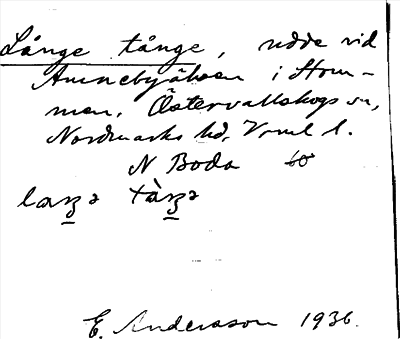 Långe tånge, udde vid
Annebysälven i Stom-
men, Östervallskogs sn,
Nordmarks hd, Vrml l.
N Boda 60
E. Andersson 1936.